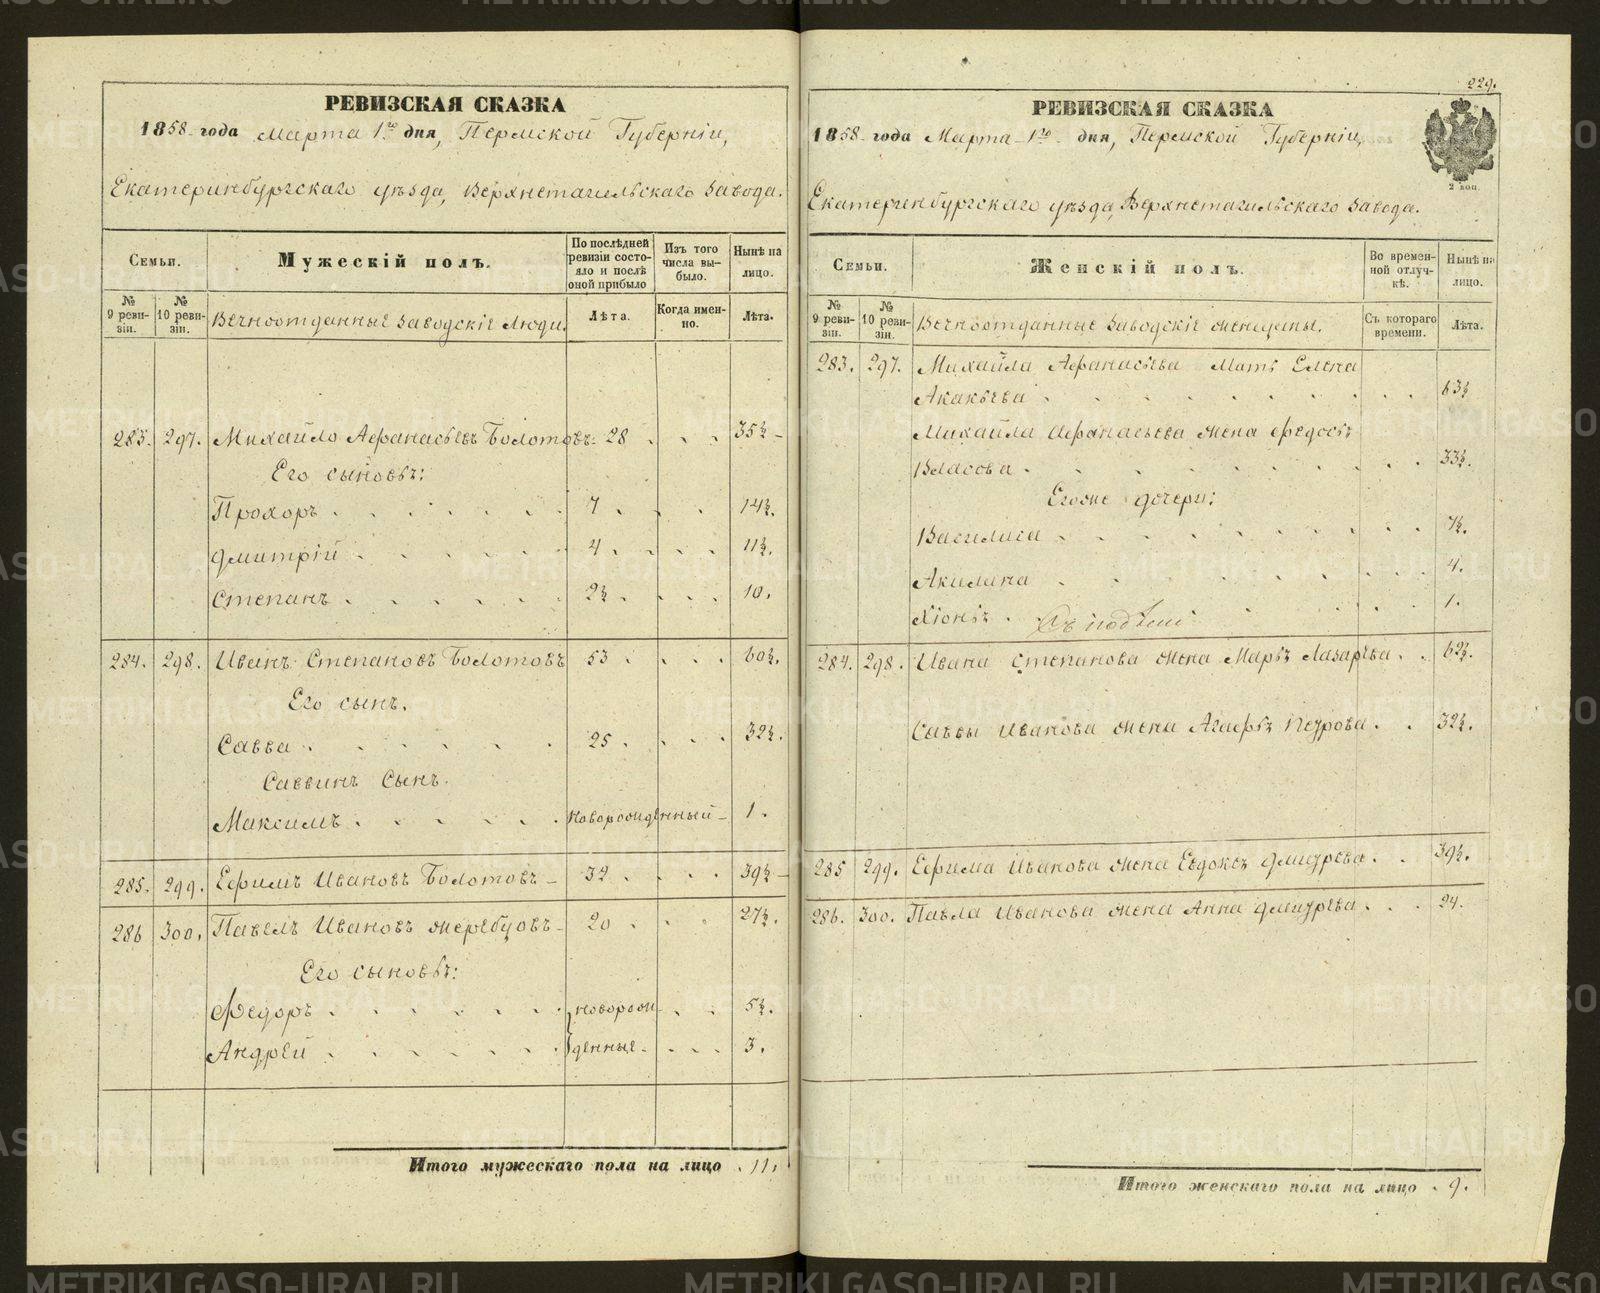 РЕВИЗСКАЯ СКАЗКА
1858 года Марта 1го дня, Пермской Губерніи,
Екатеринбургскаго уѣзда, Верхнетагильскаго Завода.
Семьи.
Мужескій полъ.
По послѣдней ревизіи состояло и послѣ оной прибыло
Изъ того числа выбыло.
Нынѣ на лицо.
№ 9 ревизіи.
№ 10 ревизіи.
Вечноотданные Заводскіе Люди.
Лѣта.
Когда именно.
Лѣта.
283. 297. Михайло Афанасьевъ Болотовъ 28 . . . 35½
Его сыновья:
Прохоръ . . . . . 7 . . . 14½.
Дмитрій . . . . . 4 . . . 11½.
Степанъ . . . . . 2½ . . . 10.
284. 298. Иванъ Степановъ Болотовъ 53 . . . 60½.
Его сынъ.
Савва . . . . . 25 . . . 32½.
Саввинъ Сынъ.
Максимъ . . . . . Новорожденный 1.
285. 299. Ефимъ Ивановъ Болотовъ 32 . . . 39½
286 300. Павелъ Ивановъ Жеребцовъ 20 . . . 27½.
Его сыновья:
Федоръ . . . . . новорож . . 5½.
Андрей . . . . . денные . . . 3.
Итого мужескаго пола на лицо . 11.
229.
РЕВИЗСКАЯ СКАЗКА
1858 года Марта 1го дня, Пермской Губерніи,
2 коп.
Екатеринбургскаго уѣзда, Верхнетагильскаго Завода.
Семьи.
Женскій полъ.
Во временной отлучкѣ.
Нынѣ на лицо.
№ 9 ревизіи.
№ 10 ревизіи.
Вечноотданные Заводскіе женщины.
Съ котораго времени.
Лѣта.
283. 297. Михайла Афанасьева Мать Елена
Акакьева . . . . . 63½
Михайла Афанасьева жена Федосья
Власова . . . . . 33½.
Егоже дочери:
Василиса . . . . . 7½.
Акилина . . . . . 4.
Хіонья . . . . . 1.
284. 298. Ивана Степанова жена Марья Лазарева . . 62½.
Саввы Иванова жена Агафья Петрова . . 32½.
285 299. Ефима Иванова жена Евдокья Дмитрева . . 39½.
286. 300. Павла Иванова жена Анна Дмитрева . . . 24.
Итого женскаго пола на лицо . 9.
METRIKI.GASO-URAL.RU